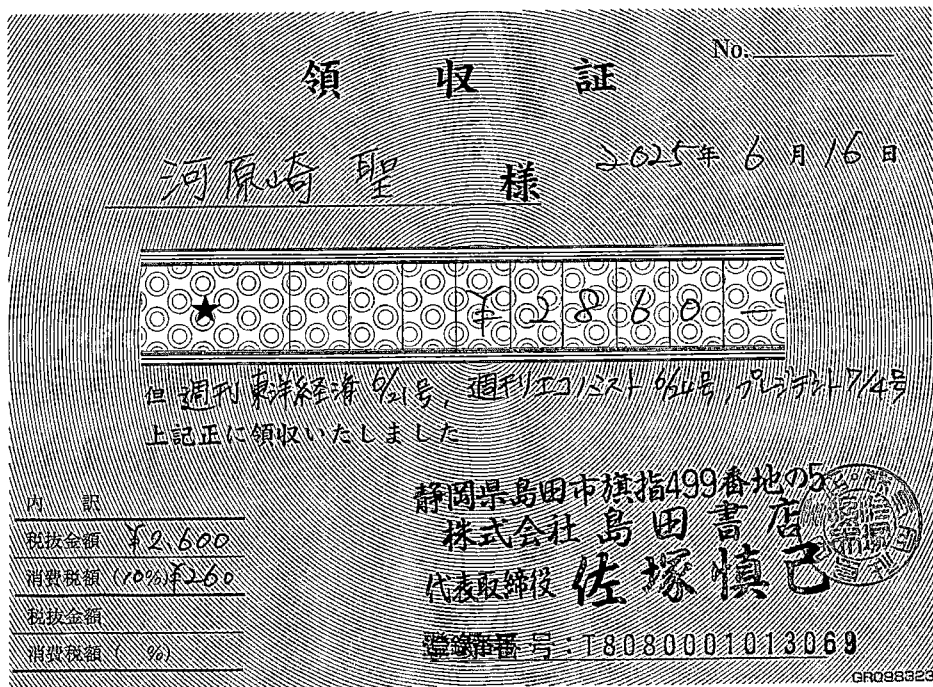 No.
領収証
2025年 6月 16日
河原崎 聖 様
★ ¥2860-
但 週刊東洋経済 6/21号, 週刊エコノミスト 6/24号, プレジデント 7/4号
上記正に領収いたしました
内訳
税抜金額 ¥2,600
消費税額 (10%) ¥260
税抜金額
消費税額 ( %)
静岡県島田市旗指499番地の5
株式会社 島田書店
代表取締役 佐塚慎己
登録番号:T8080001013069
GR098323